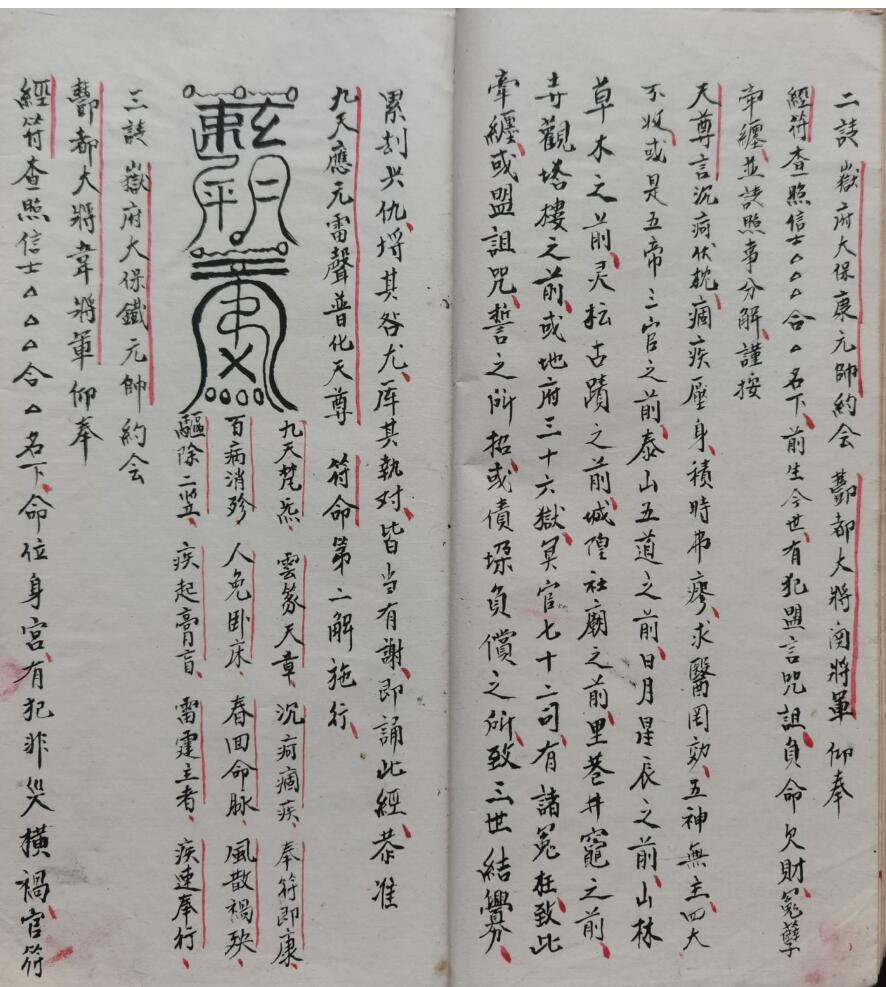 二誥嶽府太保康元帥約会　酆都大將南將軍　仰奉
經符查照信士△△△合△名下前生今世有犯盟言咒詛負命欠財冤孽
牽纏並誥照事分解謹按
天尊言沉疴伏枕痼疾壓身積時弗瘳求醫罔効五神無主四大
不收或是五帝三官之前泰山五道之前日月星辰之前山林
草木之前灵坛古蹟之前城隍社廟之前里巷井竈之前
寺觀塔樓之前或地府三十六獄冥官七十二司有諸冤枉致此
牽纏或盟詛咒誓之所招或債垛負償之所致三世結釁
累刼兴仇埒其咎尤厍其執对皆当有謝即誦此經恭准
九天應元雷聲普化天尊　符命第二解施行
九天梵炁　雲篆天章　沉疴痼疾　奉符即康
百病消殄　人免卧床　春回命脉　風散禍殃
驅除二竖　疾起膏肓　雷霆主者　疾速奉行
三誥嶽府太保鐵元帥約会
酆都大將韋將軍仰奉
經符查照信士△△△合△名下命位身宮有犯非災橫禍官符